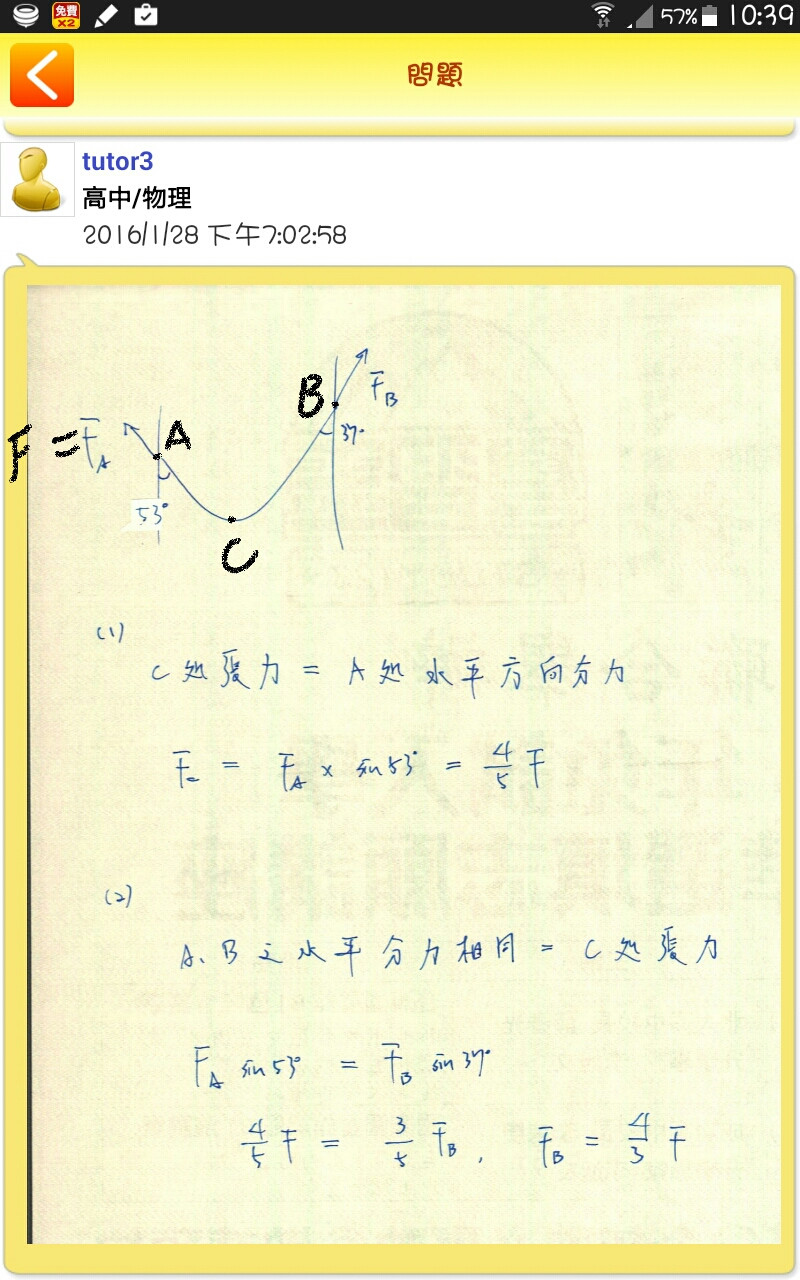 免費 X2 57% 10:39
問題
tutor3
高中/物理
2016/1/28 下午7:02:58
B F_B
F = F_A A 37°
53°
C
(1)
C 处張力 = A 处水平方向分力
F_C = F_A × sin53° = 4/5 F
(2)
A、B之水平分力相同 = C 处張力
F_A sin53° = F_B sin37°
4/5 F = 3/5 F_B , F_B = 4/3 F